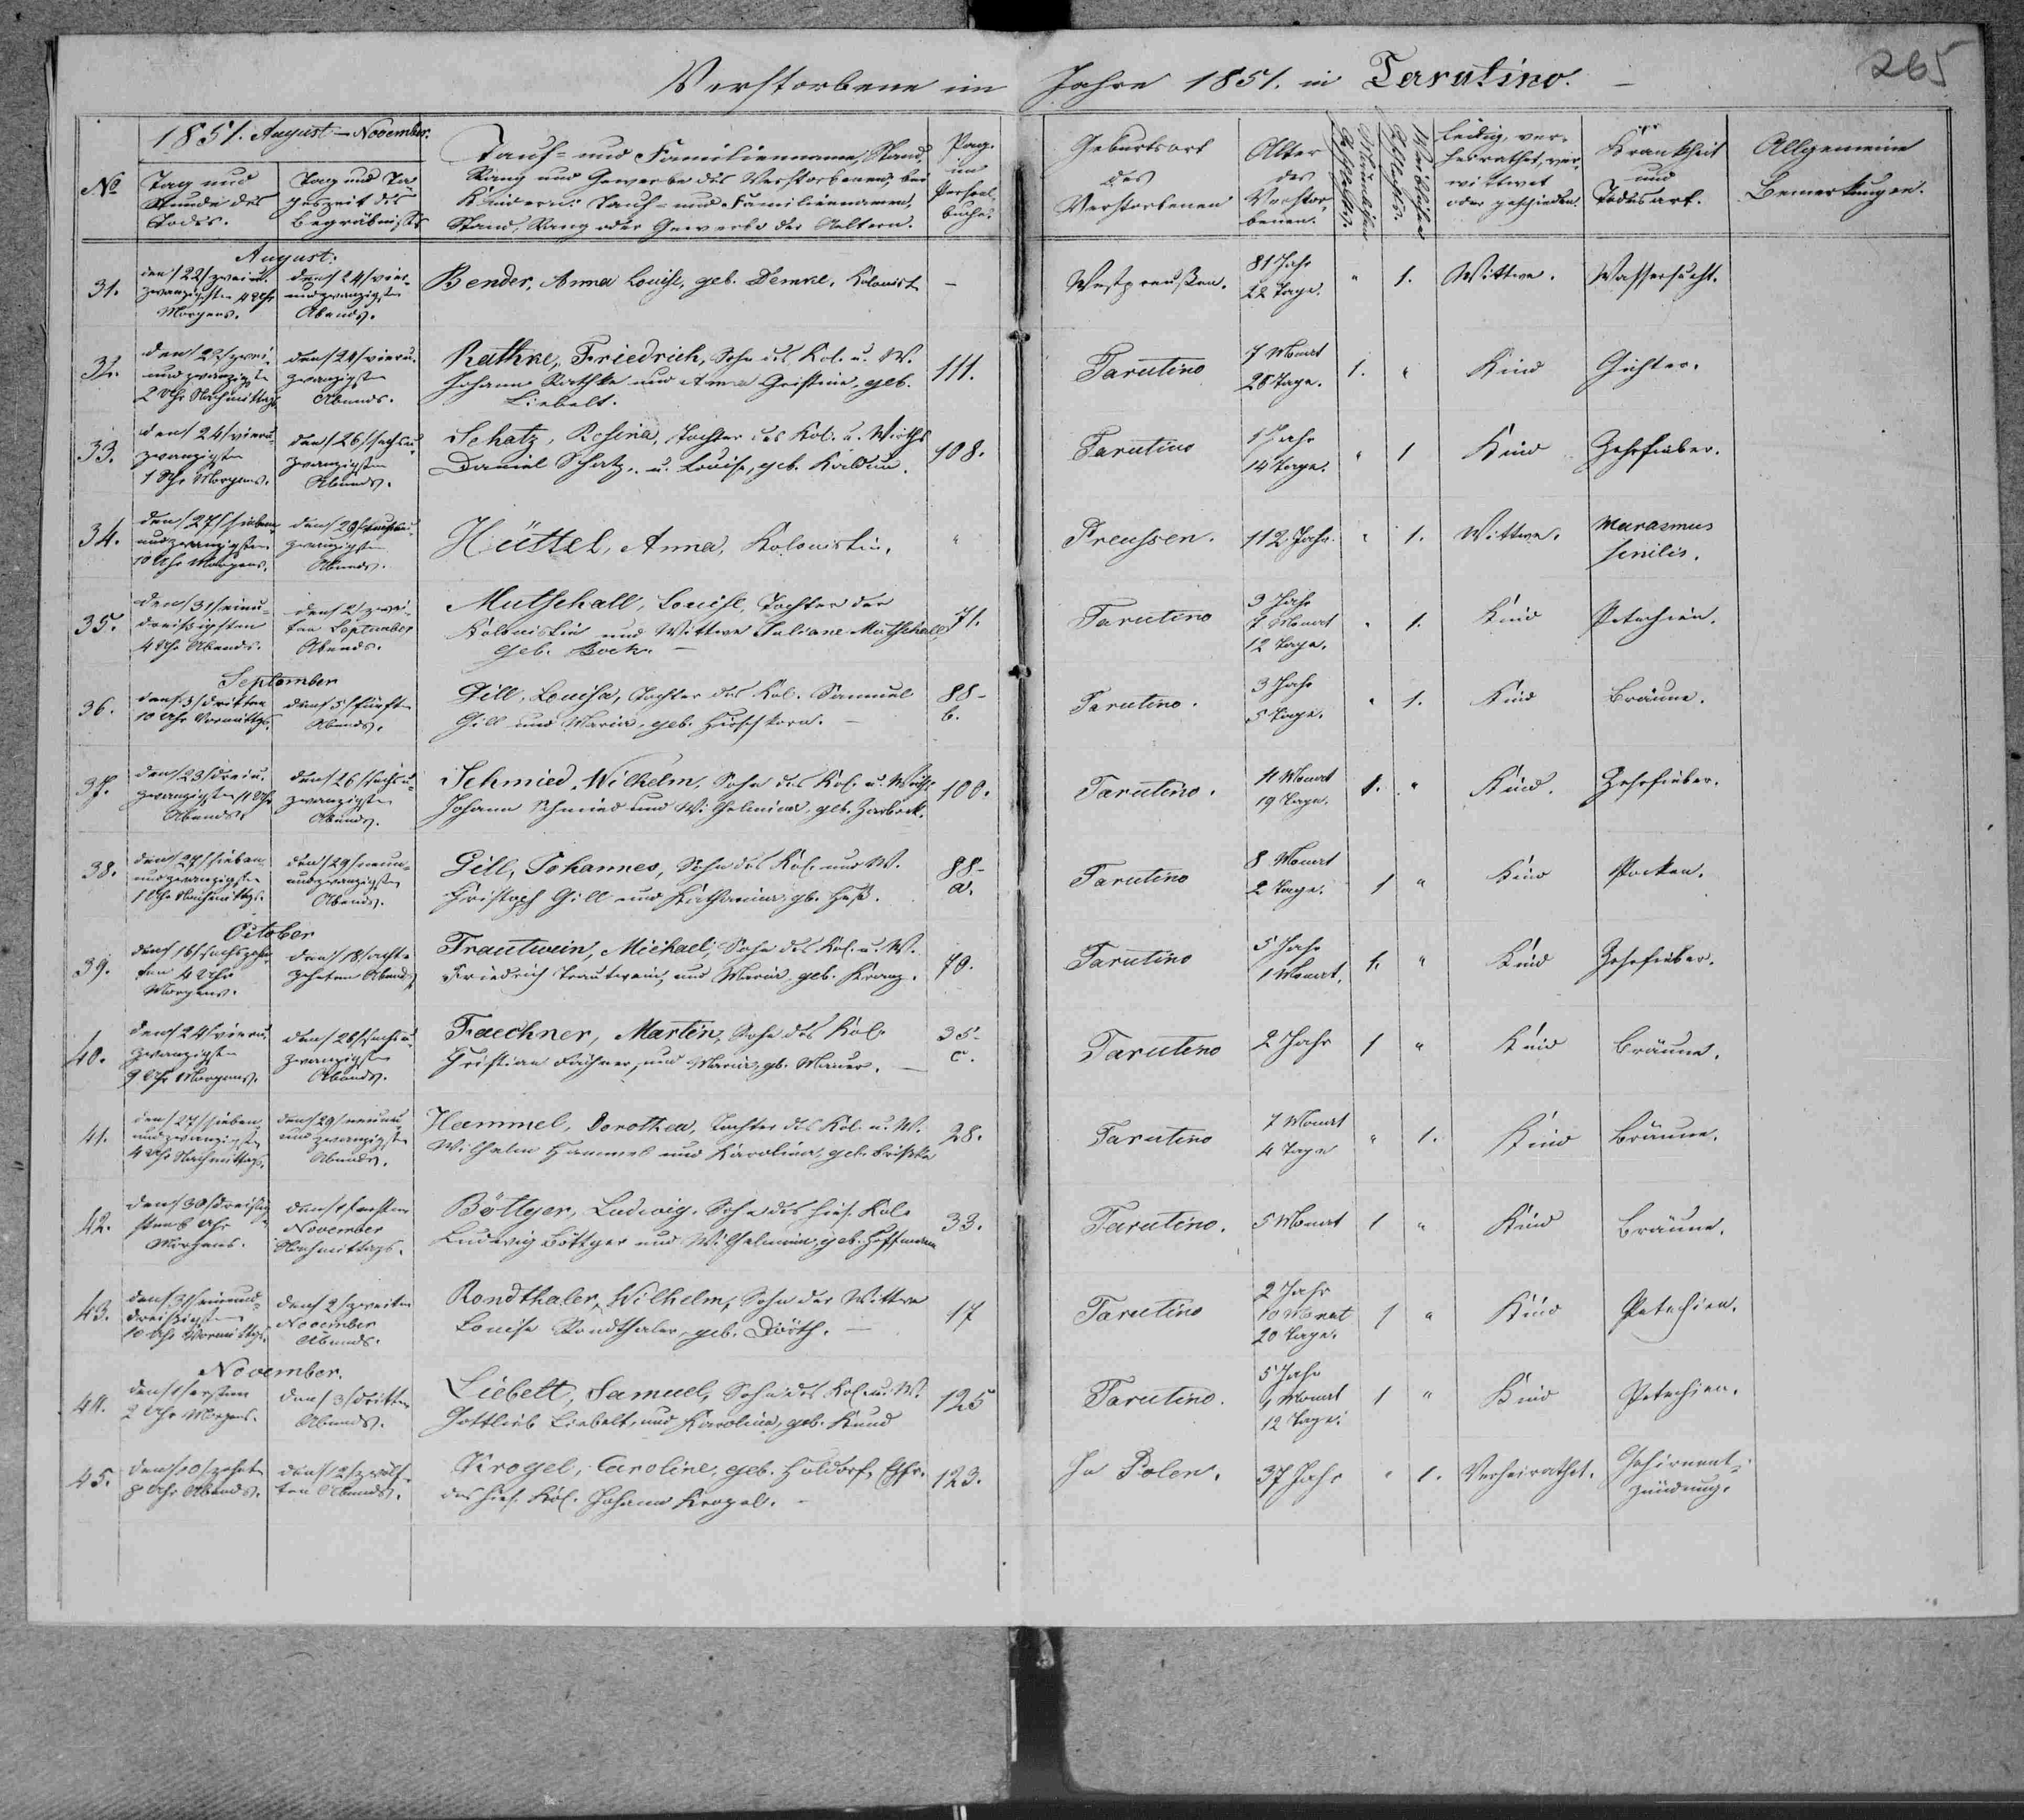 265
Verstorbene im Jahre 1851. in Tarutino. –
1851. August – November.
№
Tag und
Stunde des
Todes.
Tag und Ta-
geszeit des
Begräbnißes
Tauf- und Familienname, Stand,
Rang und Gewerbe des Verstorbenen, bei
Kindern: Tauf- und Familiennamen,
Stand, Rang oder Gewerbe der Aeltern.
Pag.
im
Personal-
buche.
Geburtsort
des
Verstorbenen
Alter
des
Verstor-
benen.
Männlichen
Geschlechts.
Weiblichen
Geschlechts.
Ledig, ver-
heirathet, ver-
wittwet
oder geschieden.
Krankheit
und
Todesart.
Allgemeine
Bemerkungen.
August:
31.
den 22/zweiu.
zwanzigsten 4 Uhr
Morgens.
den 24/vier-
undzwanzigsten
Abends.
Bender, Anna Louise, geb. Demke, Kolonist.
–
Westpreußen.
81 Jahr
22 Tage.
" 1. Wittwe. Wassersucht.
32.
den 22/zwei-
undzwanzigsten
2 Uhr Nachmittags
den 24/vieru.
zwanzigsten
Abends.
Rathke, Friedrich, Sohn des Kol. u. W.
Johann Rathke und Anna Christine, geb.
Liebelt.
111.
Tarutino
7 Monat
28 Tage.
1. " Kind Gichter.
33.
den 24/vieru-
zwanzigsten
1 Uhr Morgens.
den 26/sechsu-
zwanzigsten
Abends.
Schatz, Rosina, Tochter des Kol. u. Wirths
Daniel Schatz, u. Louise, geb. Kaldun.
108.
Tarutino
1 Jahr
14 Tage.
" 1 Kind Zehrfieber.
34.
den 27/sieben-
undzwanzigsten
10 Uhr Morgens.
den 29/neunu-
zwanzigsten
Abends.
Hüttel, Anna, Kolonistin.
"
Preussen. 112 Jahr. " 1. Wittwe.
Marasmus
senilis.
35.
den 31/einu-
dreißigsten
4 Uhr Abends.
den 2/zwei-
ten September
Abends.
Mutschall, Louise, Tochter der
Kolonistin und Wittwe Juliane Mutschall
geb. Bock. –
71.
Tarutino
3 Jahr
7 Monat
12 Tage.
" 1. Kind Petechien.
September
36.
den 3/dritten
10 Uhr Vormittgs.
den 5/fünften
Abends.
Gill, Louisa, Tochter des Kol. Samuel
Gill und Maria, geb. Hirschkorn. –
88-
b.
Tarutino.
3 Jahr
5 Tage.
" 1. Kind Bräune.
37.
den 23/dreiu.
zwanzigsten 11 Uhr
Abends.
den 26/sechsu-
zwanzigsten
Abends.
Schmied, Wilhelm, Sohn des Kol. u. Wirths
Johann Schmied und Wilhelmina, geb. Zarbock.
100.
Tarutino.
11 Monat
19 Tage.
1. " Kind. Zehrfieber.
38.
den 27/sieben-
undzwanzigsten
1 Uhr Nachmittgs.
den 29/neun-
undzwanzigsten
Abends.
Gill, Johannes, Sohn des Kol. und W.
Christoph Gill und Katharina, gb. Heß.
88-
a.
Tarutino
8 Monat
2 Tage.
1 " Kind Pocken.
October
39.
den 16/sechszehn-
ten 4 Uhr
Morgens.
den 18/acht-
zehnten Abends
Trautwein, Michael, Sohn des Kol. u. W.
Friedrich Trautwein, und Maria, geb. Kranz.
70.
Tarutino
5 Jahr
1 Monat.
1. " Kind Zehrfieber.
40.
den 24/vieru.
zwanzigsten
9 Uhr Morgens.
den 26/sechsu.
zwanzigsten
Abends.
Faechner, Martin, Sohn des Kol.
Christian Fächner, und Maria, gb. Maurer. –
35-
c.
Tarutino 2 Jahr 1 " Kind Bräune.
41.
den 27/sieben
undzwanzigsten
4 Uhr Nachmittags.
den 29/neunu
undzwanzigsten
Abends.
Hammel, Dorothea, Tochter des Kol. u. W.
Wilhelm Hammel und Karolina, geb.
28.
Tarutino
7 Monat
4 Tage
" 1. Kind Bräune.
42.
den 30/dreißig-
sten 6 Uhr
Morgens.
den 1/ersten
November
Nachmittags.
Böttger, Ludwig, Sohn des hies. Kol.
Ludwig Böttger und Wilhelmina, geb. Hoffmann
33.
Tarutino. 5 Monat 1 " Kind Bräune.
43.
den 31/einund-
dreißigsten
10 Uhr Vormittgs.
den 2/zweiten
November
Abends.
Rondthaler, Wilhelm, Sohn der Wittwe
Louise Rondthaler, geb. Dörth. –
17
Tarutino
2 Jahr
10 Monat
20 Tage.
1 " Kind Petechien.
November.
44.
den 1/ersten
2 Uhr Morgens.
den 3/dritten
Abends.
Liebelt, Samuel, Sohn des Kol. u. W.
Gottlieb Liebelt, und Karolina, geb. Kund
125
Tarutino.
5 Jahr
4 Monat
12 Tage.
1 " Kind Petechien.
45.
den 10/zehnten
8 Uhr Abends.
den 12/zwölf-
ten Abends.
Krogel, Caroline, geb. Holdorf, Ehfr.
des hies. Kol. Johann Krogel. –
123.
In Polen. 37 Jahr " 1. Verheirathet.
Gehirnent-
zündung.